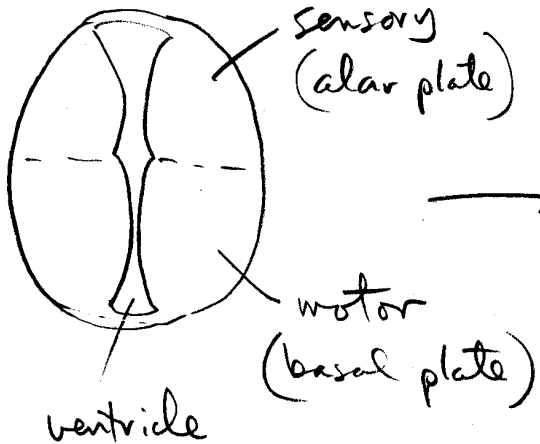 sensory
(alar plate)
motor
(basal plate)
ventricle